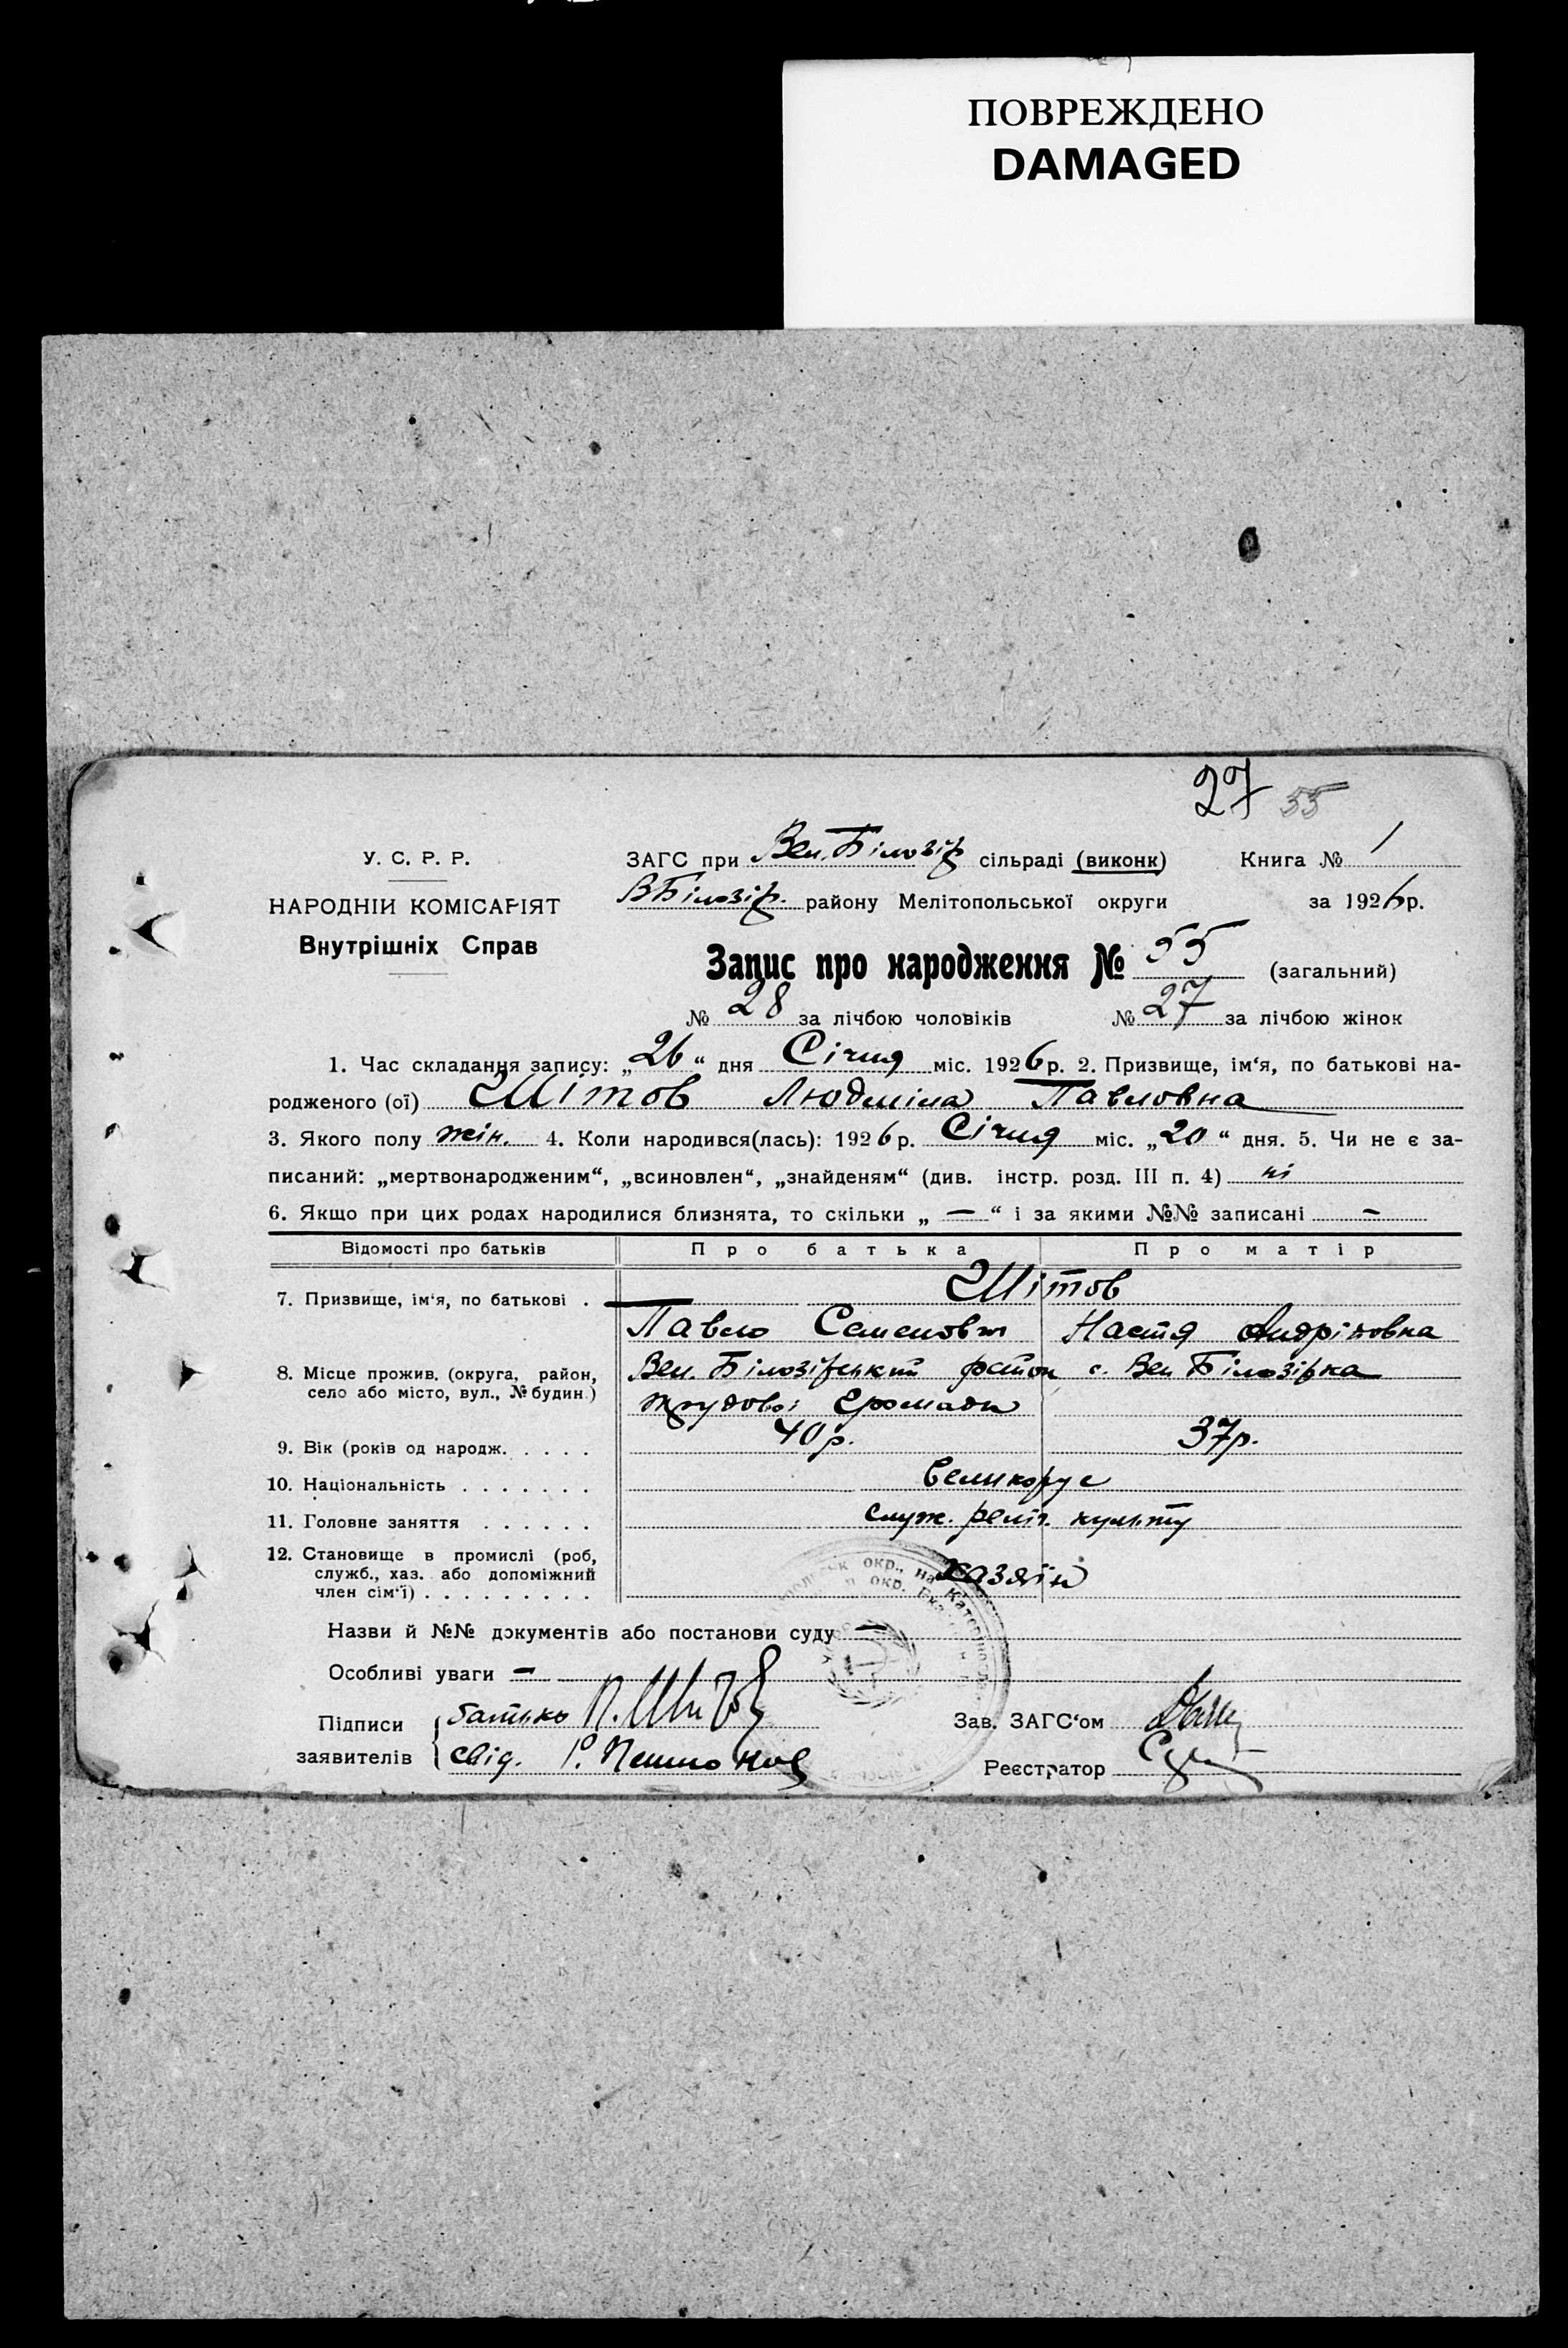 ПОВРЕЖДЕНО
DAMAGED
27 55
У. С. Р. Р.
НАРОДНІЙ КОМІСАРІЯТ
Внутрішніх Справ
ЗАГС при Вел. Білозір сільраді (виконк) Книга № 1
ВБілозір. району Мелітопольської округи за 1926 р.
Запис про народження № 55 (загальний)
№ 28 за лічбою чоловіків № 27 за лічбою жінок
1. Час складання запису: „26“ дня Січня міс. 1926 р. 2. Призвище, ім‘я, по батькові на-
родженого (ої) Шітов Людміла Павловна
3. Якого полу жін. 4. Коли народився(лась): 1926 р. Січня міс. „20“ дня. 5. Чи не є за-
писаний: „мертвонародженим“, „всиновлен“, „знайденям“ (див. інстр. розд. III п. 4) ні
6. Якщо при цих родах народилися близнята, то скільки „ — “ і за якими №№ записані —
Відомості про батьків Про батька Про матір
7. Призвище, ім‘я, по батькові . Шітов
Павло Семенович Настя Андріковна
8. Місце прожив. (округа, район,
село або місто, вул., № будин.)
Вел. Білозірський район с. Вел Білозірка
трудової громади
9. Вік (років од народж. . . . . 40 р. 37 р.
10. Національність . . . . . . . великорус
11. Головне заняття . . . . . . служ. реліг. культу
12. Становище в промислі (роб,
служб., хаз. або допоміжний
член сім‘ї) . . . . . . . . . хазяін
Назви й №№ документів або постанови суду —
Особливі уваги —
Підписи
заявителів
батько П. Шитов
свід.
Зав. ЗАГС‘ом
Реєстратор